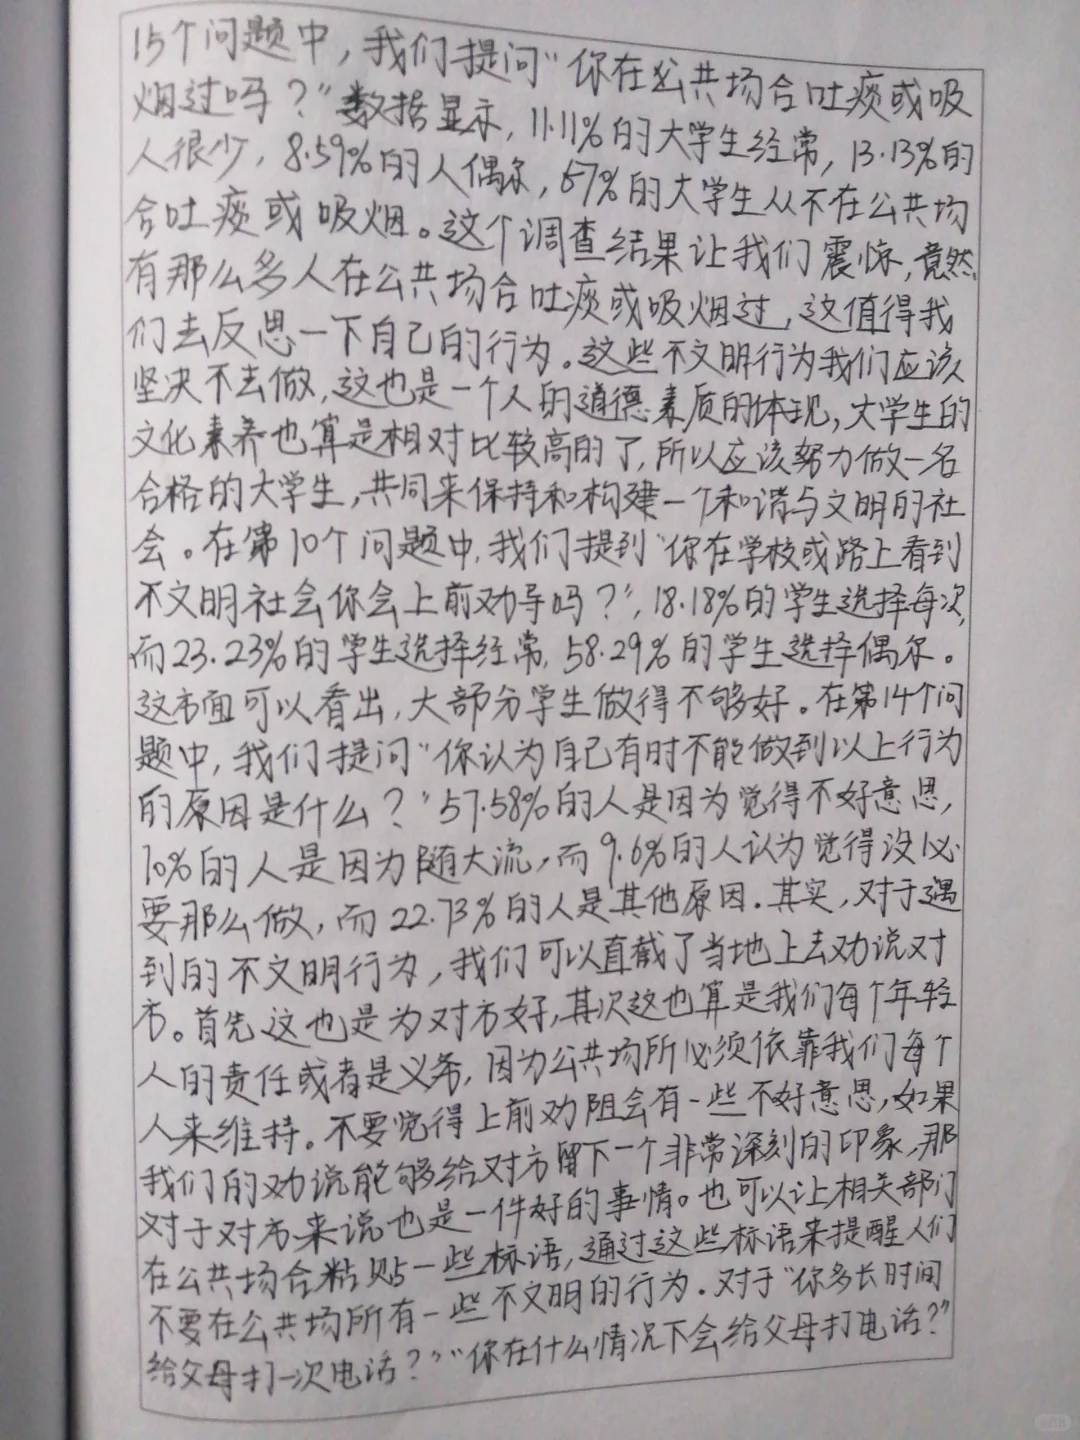 15个问题中，我们提问“你在公共场合吐痰或吸
烟过吗？”数据显示，11.11%的大学生经常，13.13%的
人很少，8.59%的人偶尔，67%的大学生从不在公共场
合吐痰或吸烟。这个调查结果让我们震惊，竟然
有那么多人在公共场合吐痰或吸烟过，这值得我
们去反思一下自己的行为。这些不文明行为我们应该
坚决不去做，这也是一个人的道德素质的体现，大学生的
文化素养也算是相对比较高的了，所以应该努力做一名
合格的大学生，共同来保持和构建一个和谐与文明的社
会。在第10个问题中，我们提到“你在学校或路上看到
不文明社会你会上前劝导吗？”，18.18%的学生选择每次，
而23.23%的学生选择经常，58.29%的学生选择偶尔。
这方面可以看出，大部分学生做得不够好。在第14个问
题中，我们提问“你认为自己有时不能做到以上行为
的原因是什么？”57.58%的人是因为觉得不好意思，
10%的人是因为随大流，而9.6%的人认为觉得没必
要那么做，而22.73%的人是其他原因。其实，对于遇
到的不文明行为，我们可以直截了当地上去劝说对
方。首先这也是为对方好，其次这也算是我们每个年轻
人的责任或者是义务，因为公共场所必须依靠我们每个
人来维持。不要觉得上前劝阻会有一些不好意思，如果
我们的劝说能够给对方留下一个非常深刻的印象，那
对于对方来说也是一件好的事情。也可以让相关部门
在公共场合粘贴一些标语，通过这些标语来提醒人们
不要在公共场所有一些不文明的行为。对于“你多长时间
给父母打一次电话？”“你在什么情况下会给父母打电话？”